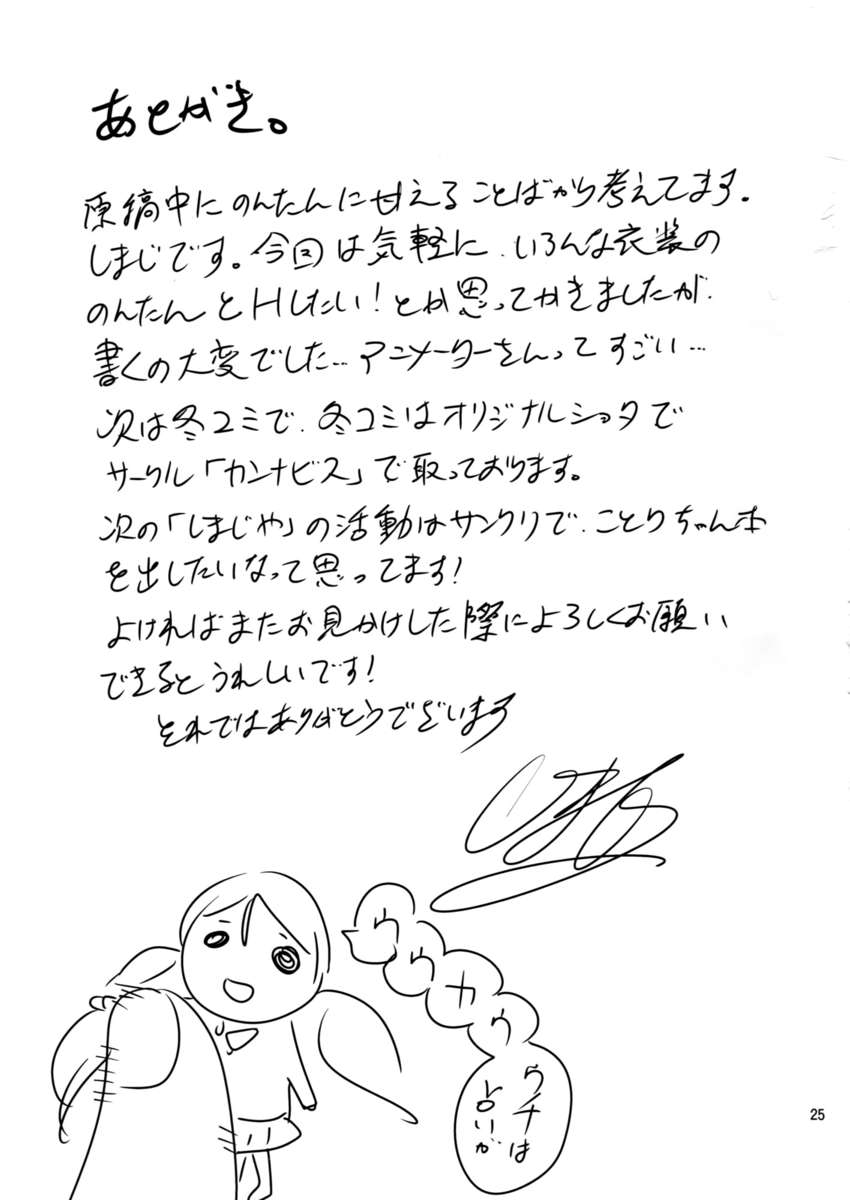 あとがき。
原稿中にのんたんに甘えることばかり考えてます。
しまじです。今回は気軽に、いろんな衣装の
のんたんとHしたい！とか思ってかきましたが、
書くの大変でした…アニメーターさんってすごい…
次は冬コミで、冬コミはオリジナルショタで
サークル「カンナビス」で取っております。
次の「しまじや」の活動はサンクリで、ことりちゃん本
を出したいなって思ってます！
よければまたお見かけした際によろしくお願い
できるとうれしいです！
それではありがとうございます
ウ
ウ
カ
ウ
ウチは
占いが
25